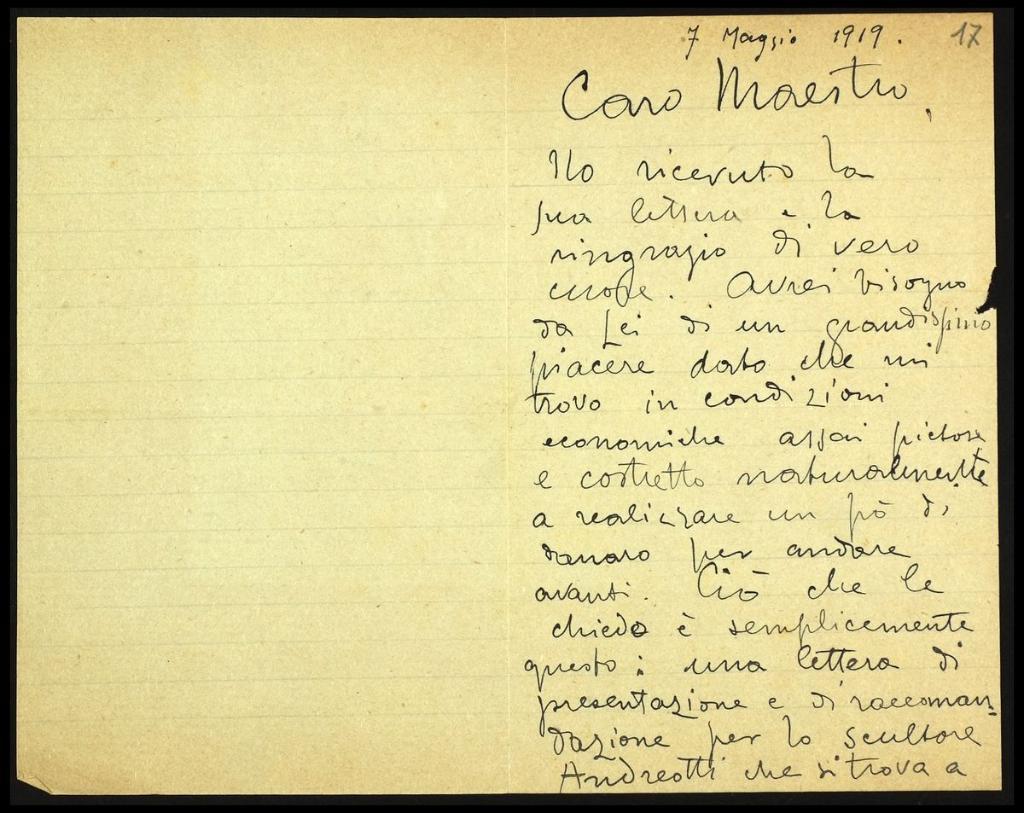 7 Maggio 1919. 17
Caro Maestro,
Ho ricevuto la
sua lettera e la
ringrazio di vero
cuore. Avrei bisogno
da Lei di un grandissimo
piacere dato che mi
trovo in condizioni
economiche assai pietose
e costretto naturalmente
a realizzare un pò di
danaro per andare
avanti. Ciò che le
chiedo è semplicemente
questo: una lettera di
presentazione e di raccoman-
dazione per lo scultore
Andreotti che si trova a